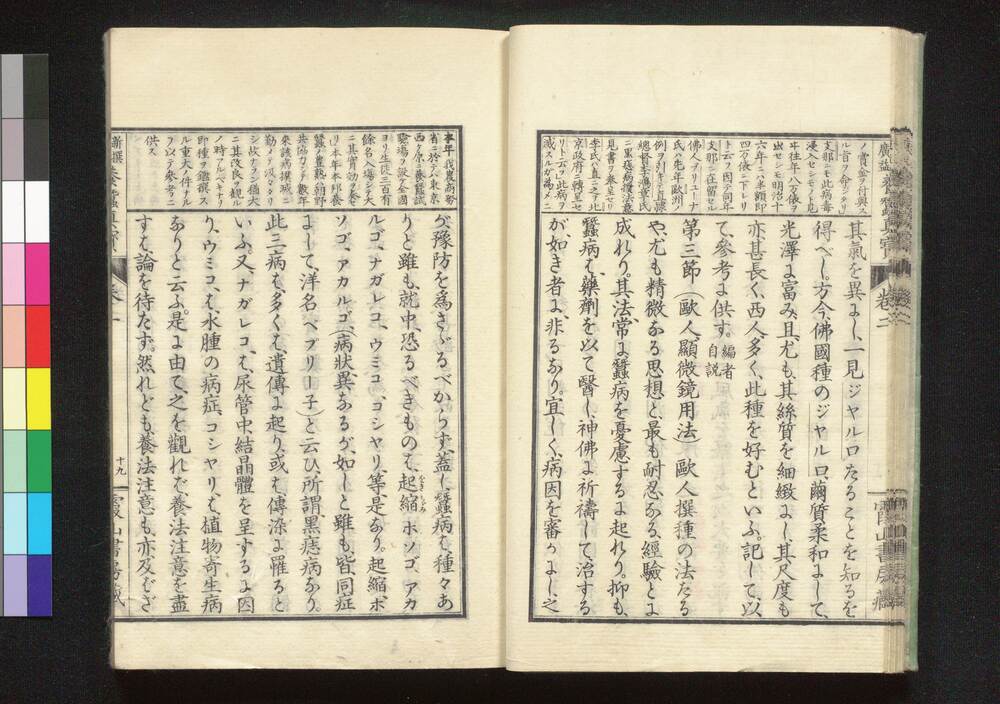 其氣を異にし、一見ジャルロたることを知るを
得べし。方今、佛國種のジャルロ、繭質柔和にして、
光澤に富み、且尤も、其絲質を細緻にし、其尺度も
亦甚長く、西人多く、此種を好むといふ。記して、以
て、參考に供す。編者自説
第三節(歐人、顯微鏡用法)歐人撰種の法たる
や、尤も精微なる思想と、最も耐忍なる、經驗とに
成れり。其法、常に蠶病を憂慮するに起れり。抑も、
蠶病は、藥劑を以て醫し、神佛に祈禱して治する
が如き者に、非るなり。宜しく、病因を審かにし、之
ノ賞金ヲ付與ス
ル旨ヲ命ジタリ
支那ニモ此病毒
浸入セシモノト見
ヱ往年八万俵ヲ
出セシモ明治十
六年ニハ半額即
四万俵ニ下レリ
ト云フ因テ同年
支那ニ在留セル
佛人ブリューナ
氏ハ先年歐洲ノ
例ヲ引キテ直隸
總督李鴻章氏
ニ蠶病撲滅法意
見書ヲ奉呈セリ
李氏ハ直ニ之ヲ北
京政府ニ轉呈セ
リト云フ此病ヲ
滅スルガ爲メニ
が豫防を爲さゞるべからず、蓋し蠶病は、種々あ
りと雖も、就中、恐るべきものは、起縮、ホソゴ、アカ
ルゴ、ナガレコ、ウミコ、コシヤリ、等是なり。起縮、ホ
ソゴ、アカルゴ、(病狀異なるが、如しと雖も、皆、同症
にして、洋名ペブリー子)と云ひ、所謂、黒痣病なり。
此三病は、多くは遺傳に起り、或は傳染に罹ると
いふ、又、ナガレコは、尿管中、結晶體を呈するに因
り、ウミコは、水腫の病症、コシヤリは、植物寄生病
なりと云ふ。是に由て、之を觀れば、養法注意を盡
すは、論を待たず。然れども、養法注意も、亦、及ばざ
本年我農商務
省ニ於テハ東京
西ケ原ニ養蠶試
驗場ヲ設ケ全國
ヨリ生徒三百有
餘名入場シテ大
ニ其實効ヲ奏セ
リ本年本邦養
蠶ノ豐熟ハ朝野
共協力シテ數年
來該病撲滅ニ
勤メテ汲々タリ
シ故ナラン猶大
ニ其改良ヲ觀ル
ノ時アルベキナリ
即種ヲ鑑撰ス
ル重大ノ件ナル
ヲ以テ參考ニ
供ス
卷二
十九
霞山書房藏